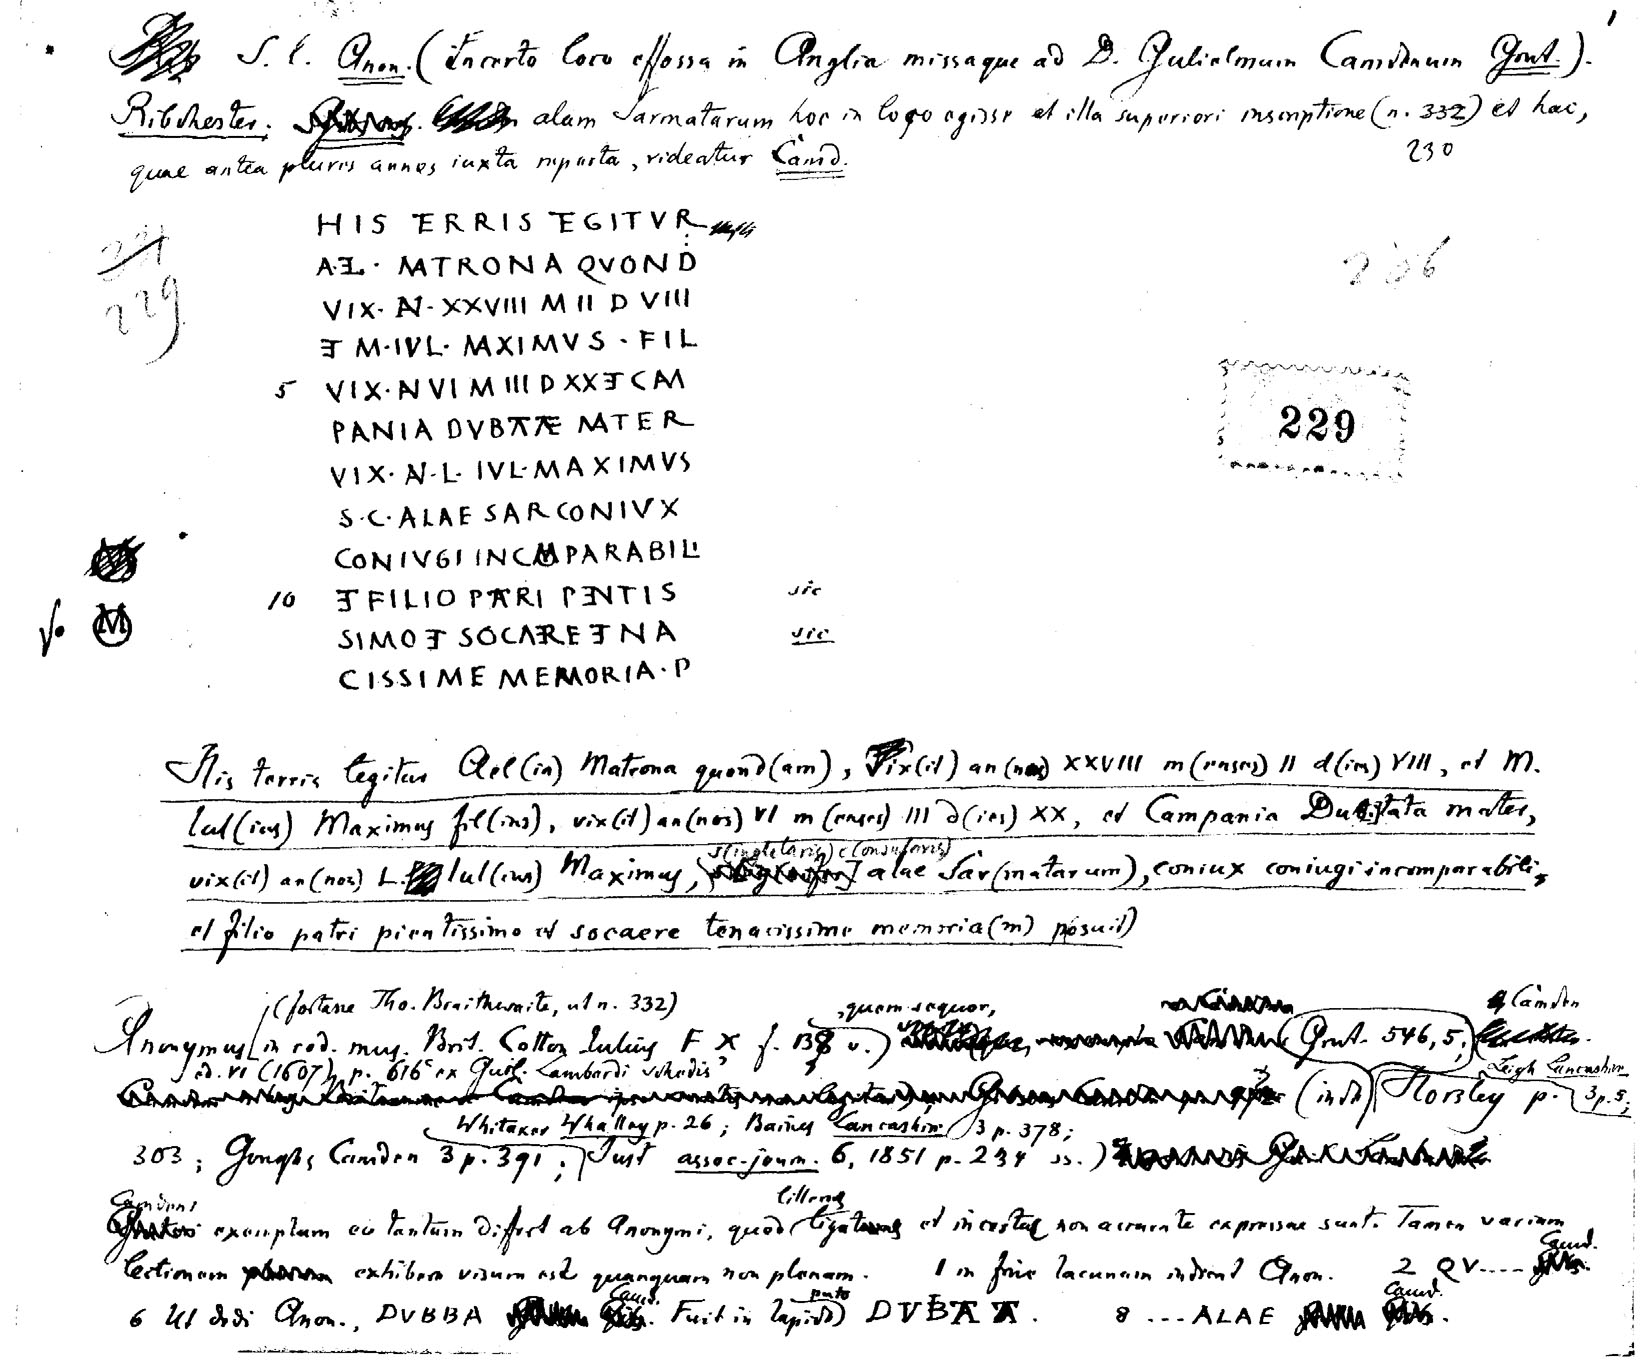 1
S. l. Anon. (Incerto loco effossa in Anglia missaque ad D. Gulielmum Camdenum Grut.).
Ribchester. alam Sarmatarum hoc in loco egisse et illa superiori inscriptione (n. 332) et hac,
230
quae antea plures annos iuxta reperta, videatur Camd.
HIS TERRIS TEGITVR
AEL · MATRONA QVOND
VIX · AN · XXVIII M II D VIII
229
206
ET M · IVL · MAXIMVS · FIL
5 VIX · AN VI M III D XX ET CAM
229
PANIA DVBTATAE MATER
VIX · AN · L · IVL · MAXIMVS
S · C · ALAE SAR CONIVX
CONIVGI INCOMPARABILI
10 ET FILIO PATRI PENTIS sic
M
SIMO ET SOCAERE TENA sic
CISSIME MEMORIA · P
His terris tegitur Ael(ia) Matrona quond(am), vix(it) an(nos) XXVIII m(enses) II d(ies) VIII, et M.
Iul(ius) Maximus fil(ius), vix(it) an(nos) VI m(enses) III d(ies) XX, et Campania Dubitata mater,
s(ingularis) c(onsularis)
vix(it) an(nos) L. Iul(ius) Maximus, alae Sar(matarum), coniux coniugi incomparabili,
et filio patri pientissimo et socaere tenacissime memoria(m) posuit)
(fortasse Tho. Braithwaite, ut n. 332) quem sequor, Camden
Anonymus in cod. mus. Brit. Cotton Iulius F X f. v.) (Grut. 546, 5;
ed. VI (1607) p. 616 ex Guil. Lambardi schedis Leigh Lancashire
(inde) Horsley p. 3 p. 5;
Whitaker Whalley p. 26; Baines Lancashire 3 p. 378;
303; Goughs Camden 3 p. 391; Just assoc. journ. 6, 1851 p. 234 ss.)
Camdeni litterae
exemplum eo tantum differt ab Anonymi, quod ligatae et incertae non accurate expressae sunt. Tamen variam
lectionem exhibere visum est quanquam non plenam. 1 in fine lacunam indicat Anon. 2 QV---- Camd.
6 Ut dedi Anon., DVBBA Camd. Fuit in lapide puto DVBTATA. 8 ... ALAE Camd.